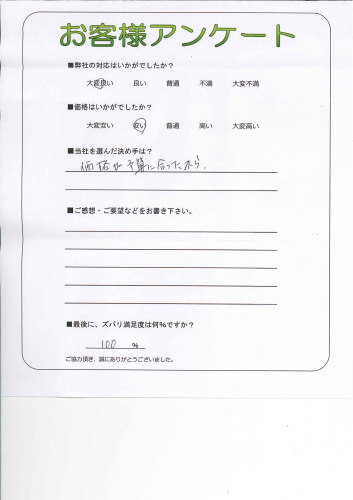 お客様アンケート
■弊社の対応はいかがでしたか?
大変良い 良い 普通 不適 大変不満
■価格はいかがでしたか?
大変安い 安い 普通 高い 大変高い
■当社を選んだ決め手は?
価格が予算に合ったから。
■ご感想・ご要望などをお書き下さい。
■最後に、ズバリ満足度は何%ですか?
100 %
ご協力頂き、誠にありがとうございました。